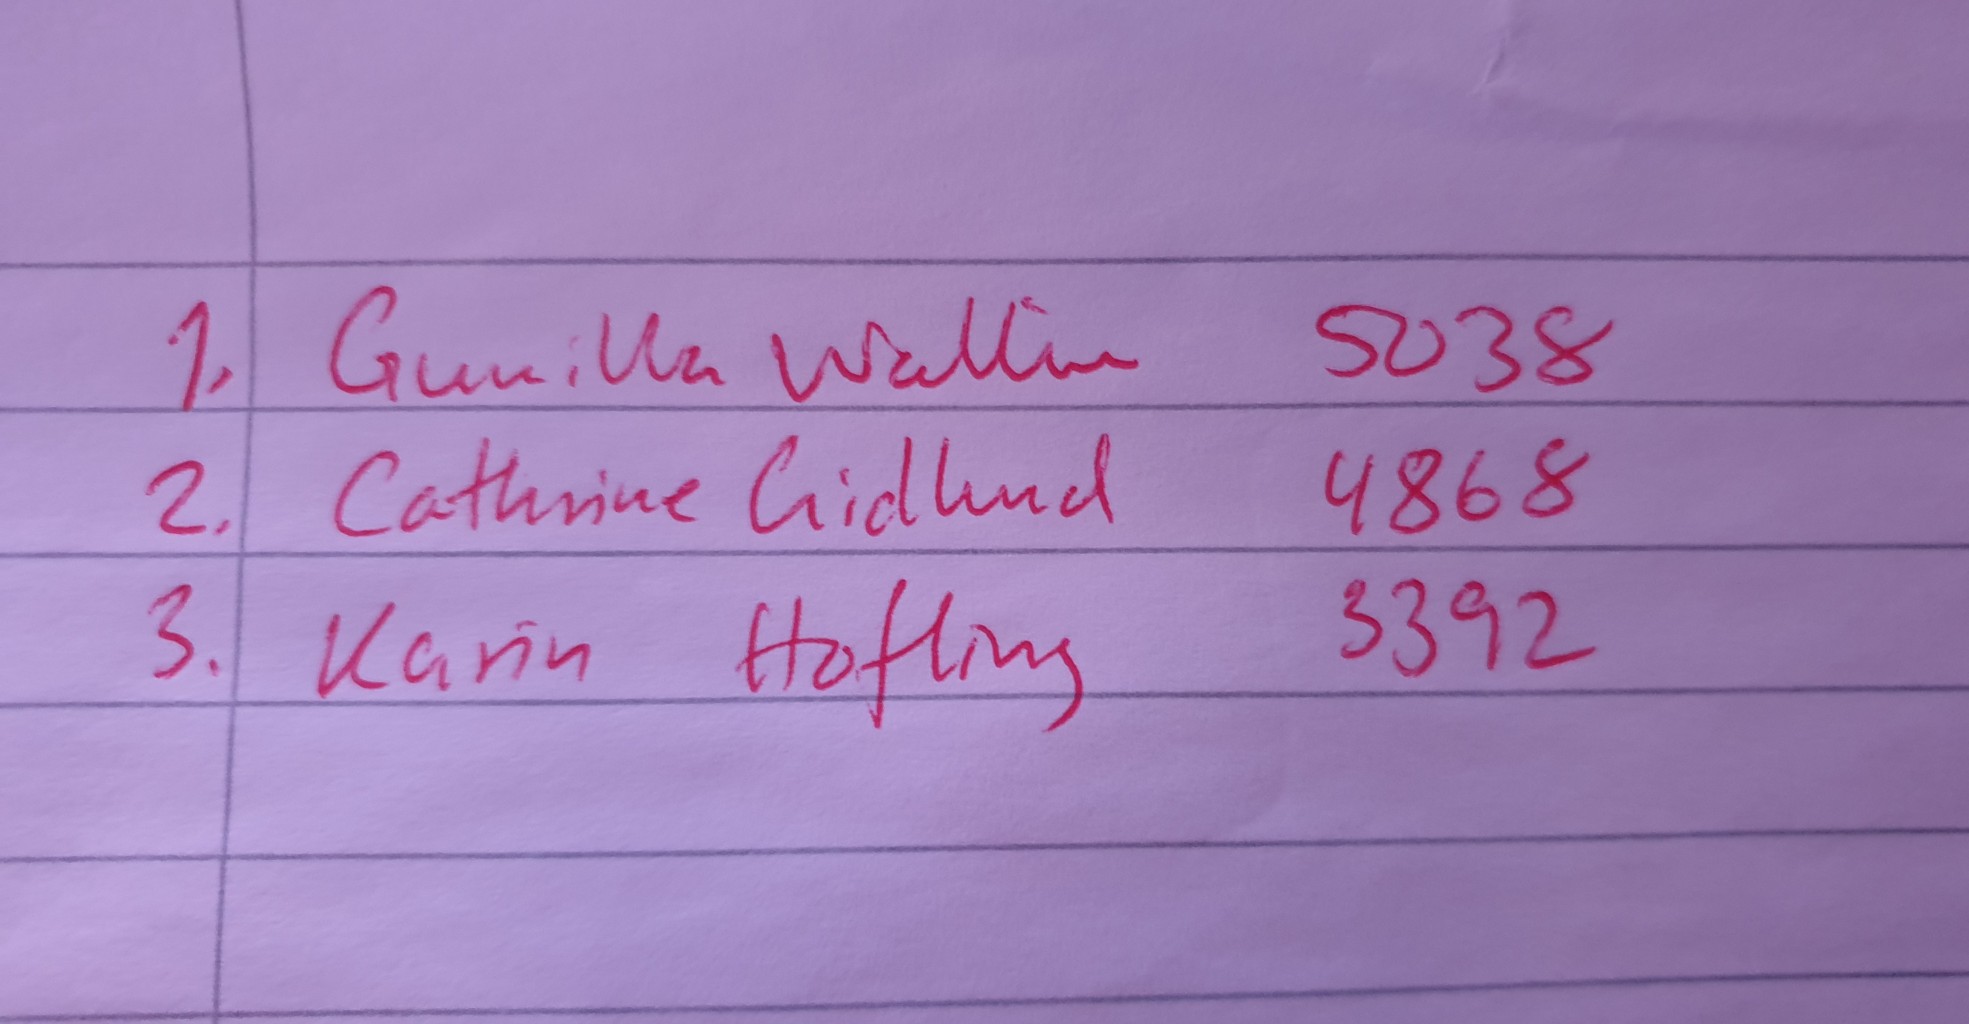 1. Gunilla Wallin 5038
2. Cathrine Gidlund 4868
3. Karin Hofling 3392